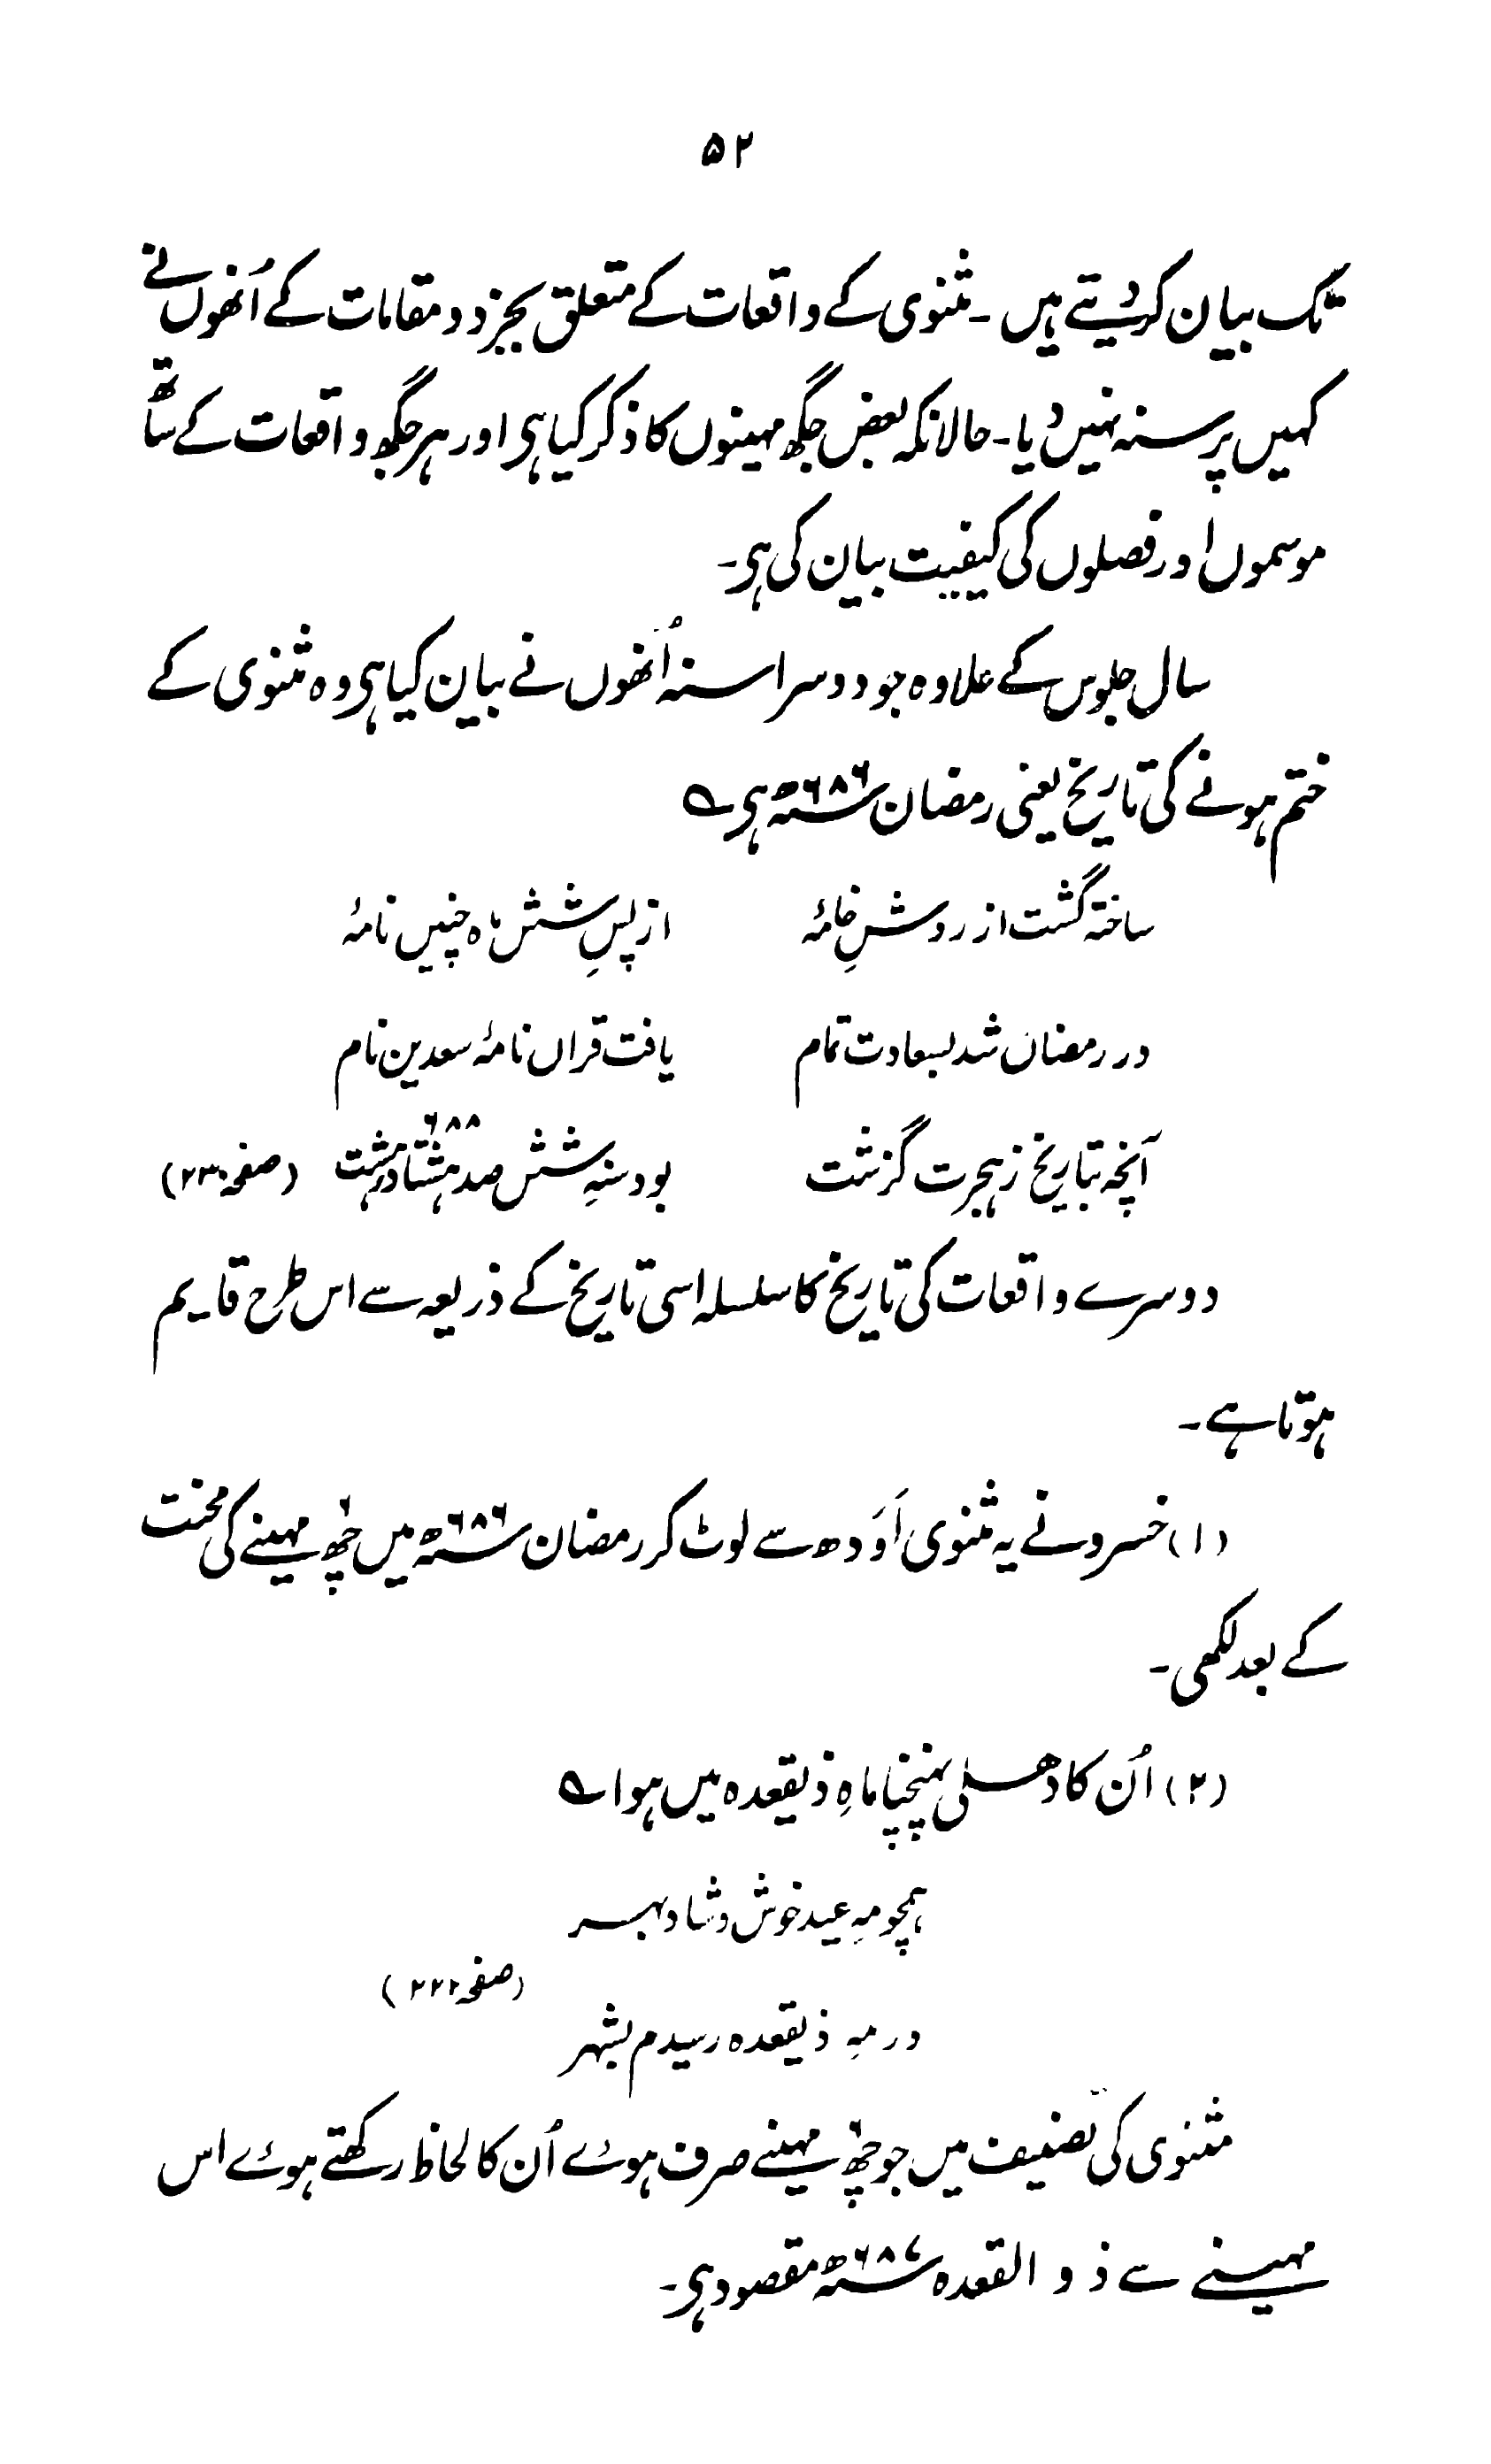 ۵۲
تک بیان کر دیتے ہیں ۔ مثنوی کے واقعات کے متعلق بجز دو مقامات کے اُنھوں نے
کہیں پر سنہ نہیں دیا ۔ حالانکہ بعض جگھ مہینوں کا ذکر کیا ہی اور ہر جگھ واقعات کے ساتھ
موسموں اور فصلوں کی کیفیت بیان کی ہی ۔
سال جلوس کے علاوہ جو دوسرا سنہ اُنھوں نے بیان کیا ہی وہ مثنوی کے
ختم ہونے کی تاریخ یعنی رمضان ۶۸۶ھ ہی ؎
ساختہ گشت از روشِ خامۂ از پسِ شش ماہ چنیں نامۂ
در رمضاں شد بسعادت تمام یافت قراں نامۂ سعدین نام
آنچہ بتاریخ ز ہجرت گزشت بود سنہِ شش صد و ہشتاد و ہشت ۶۸۸ (صفحہ ۲۳۰)
دوسرے واقعات کی تاریخ کا سلسلہ اسی تاریخ کے ذریعہ سے اس طرح قایم
ہوتا ہے ۔
(۱) خسرو نے یہ مثنوی اَوَدھ سے لوٹ کر رمضان ۶۸۶ھ میں چھ مہینے کی محنت
کے بعد لکھی ۔
(۲) اُن کا دھلی پہنچنا ماہِ ذیقعدہ میں ہوا ؎
ہمچو مہِ عید خوش و شاد بہر
(صفحہ ۲۲۲)
در مہِ ذیقعدہ رسیدم بشہر
مثنوی کی تصنیف میں جو چھ مہینے صرف ہوئے اُن کا لحاظ رکھتے ہوئے اس
مہینے سے ذو القعدہ ۶۸۷ھ مقصود ہی ۔